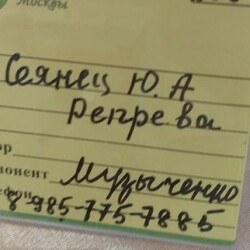 Москвы
Сеянец Ю.А
Регрева
ор
понент Музыченко
ефон 8-985-775-7885